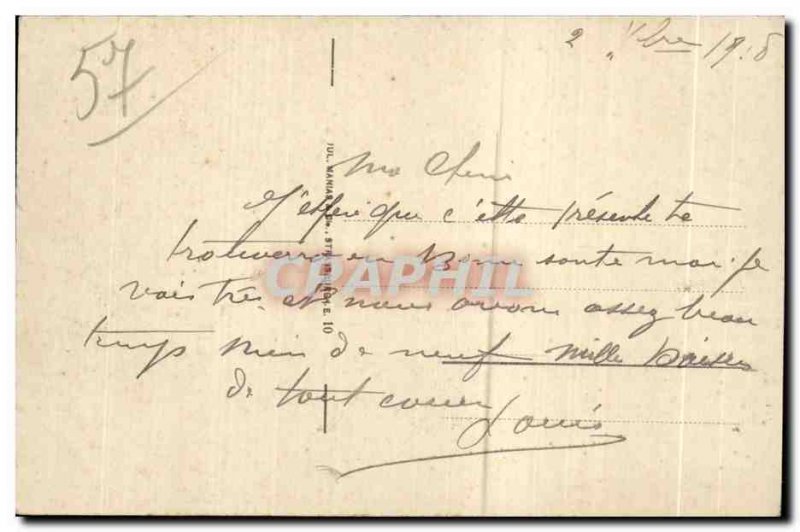 57
2 Vbre 1918
Ma Cherie
J'espere que c'ette présente te
trouvera en Bonne sante moi je
vais tres et nous avons assez beau
temps rien de neuf mille Baisers
de tout coeur
Louis
JUL. MANIAS & Cie, STRASBOURG E. 10
CRAPHIL